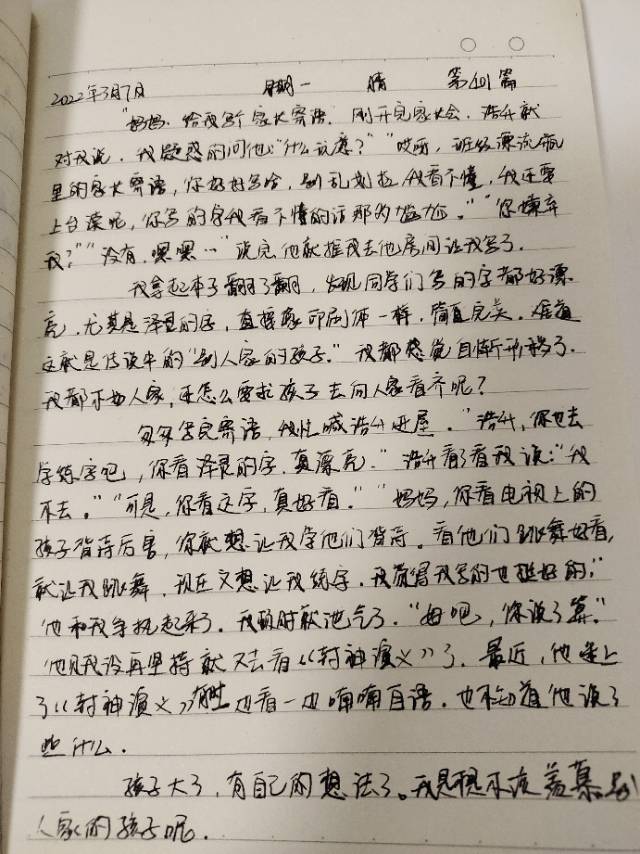 2022年3月7日 星期一 晴 第101篇
"妈妈,给我写个家长寄语。刚开完家长会,浩升就
对我说。我疑惑的问他:"什么试磨?""哎呀,班级漂流瓶
里的家长寄语,你好好写哈,别乱划拉,我看不懂,我还要
上台读呢,你写的字我看不懂的话那多尴尬。""你嫌弃
我?""没有,嘿嘿…"说完他就推我去他房间让我写了。
我拿起本子翻了翻,发现同学们写的字都好漂
亮,尤其是泽灵的字,直接象印刷体一样,简直完美。难道
这就是传说中的"别人家的孩子。"我都感觉自惭形秽了。
我都不如人家,还怎么要求孩子去向人家看齐呢?
匆匆写完寄语,我忙喊浩升进屋。"浩升,你也去
学练字吧,你看泽灵的字,真漂亮。"浩升看了看我说:"我
不去。""可是,你看这字,真好看。""妈妈,你看电视上的
孩子背诗厉害,你就想让我学他们背诗。看他们跳舞好看,
就让我跳舞,现在又想让我练字,我觉得我写的也挺好的。"
他和我争执起来了。我顿时就泄气了。"好吧,你说了算。"
他见我没再坚持就又去看《封神演义》了。最近,他迷上
了《封神演义》边看一边喃喃自语。也不知道他说了
些什么。
孩子大了,有自己的想法了。我是不该羡慕别
人家的孩子呢。